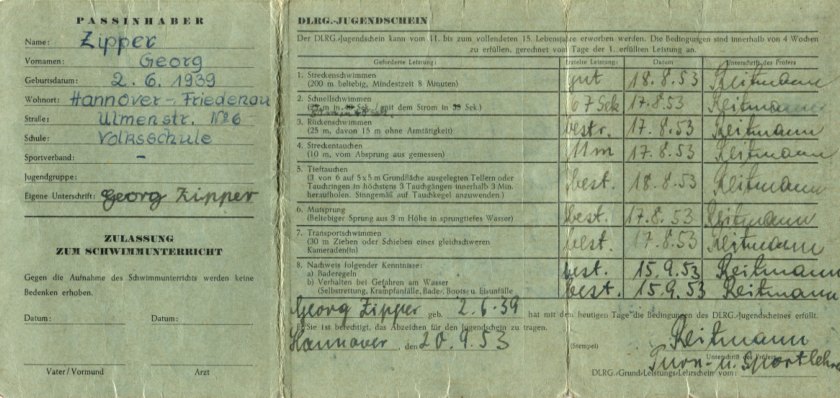 PASSINHABER
Name: Zipper
Vornamen: Georg
Geburtsdatum: 2. 6. 1939
Wohnort: Hannover-Friedenau
Straße: Ulmenstr. № 6
Schule: Volksschule
Sportverband: -
Jugendgruppe:
Eigene Unterschrift: Georg Zipper
ZULASSUNG
ZUM SCHWIMMUNTERRICHT
Gegen die Aufnahme des Schwimmunterrichts werden keine
Bedenken erhoben.
Datum: Datum:
Vater/Vormund Arzt
DLRG.-JUGENDSCHEIN
Der DLRG.-Jugendschein kann vom 11. bis zum vollendeten 15. Lebensjahre erworben werden. Die Bedingungen sind innerhalb von 4 Wochen
zu erfüllen, gerechnet vom Tage der 1. erfüllten Leistung an.
Geforderte Leistung: Erzielte Leistung: Datum Unterschrift des Prüfers
1. Streckenschwimmen gut 18.8.53 Reitmann
(200 m beliebig, Mindestzeit 8 Minuten)
2. Schnellschwimmen 67 Sek 17.8.53 Reitmann
m in Sek. mit dem Strom in Sek.)
3. Rückenschwimmen bestr. 17.8.53 Reitmann
(25 m, davon 15 m ohne Armtätigkeit)
4. Streckentauchen 11 m 17.8.53 Reitmann
(10 m, vom Absprung aus gemessen)
5. Tieftauchen best. 18.8.53 Reitmann
(3 von 6 auf 5x5 m Grundfläche ausgelegten Tellern oder
Tauchringen in höchstens 3 Tauchgängen innerhalb 3 Min.
heraufholen. Sinngemäß auf Tauchkegel anzuwenden)
6. Mutsprung best. 17.8.53 Reitmann
(Beliebiger Sprung aus 3 m Höhe in sprungtiefes Wasser)
7. Transportschwimmen best. 17.8.53 Reitmann
(30 m Ziehen oder Schieben eines gleichschweren
Kameraden/in)
8. Nachweis folgender Kenntnisse:
a) Baderegeln best. 15.9.53 Reitmann
b) Verhalten bei Gefahren am Wasser best. 15.9.53 Reitmann
(Selbstrettung, Krampfanfälle, Bade-, Boots- u. Eisunfälle
Georg Zipper geb. 2.6.39 hat mit dem heutigen Tage die Bedingungen des DLRG.-Jugendscheines erfüllt.
Er/Sie ist berechtigt, das Abzeichen für den Jugendschein zu tragen.
Hannover, den 20.9.53 (Stempel) Reitmann
Turn- u. Sportlehrer
DLRG.-Grund-/Leistungs-/Lehrschein vom: